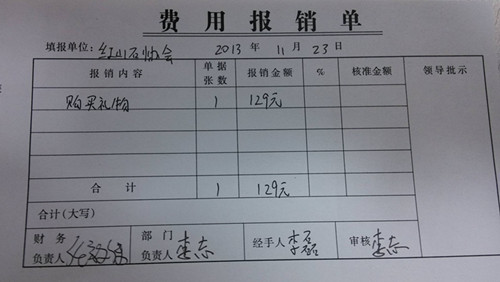 费用报销单
填报单位：红山石油会 2013 年 11 月 23 日
报销内容 单据张数 报销金额 % 核准金额 领导批示
购买礼物 1 129元
合计 1 129元
合计(大写)
财务负责人 部门负责人 李志 经手人 李磊 审核 李志